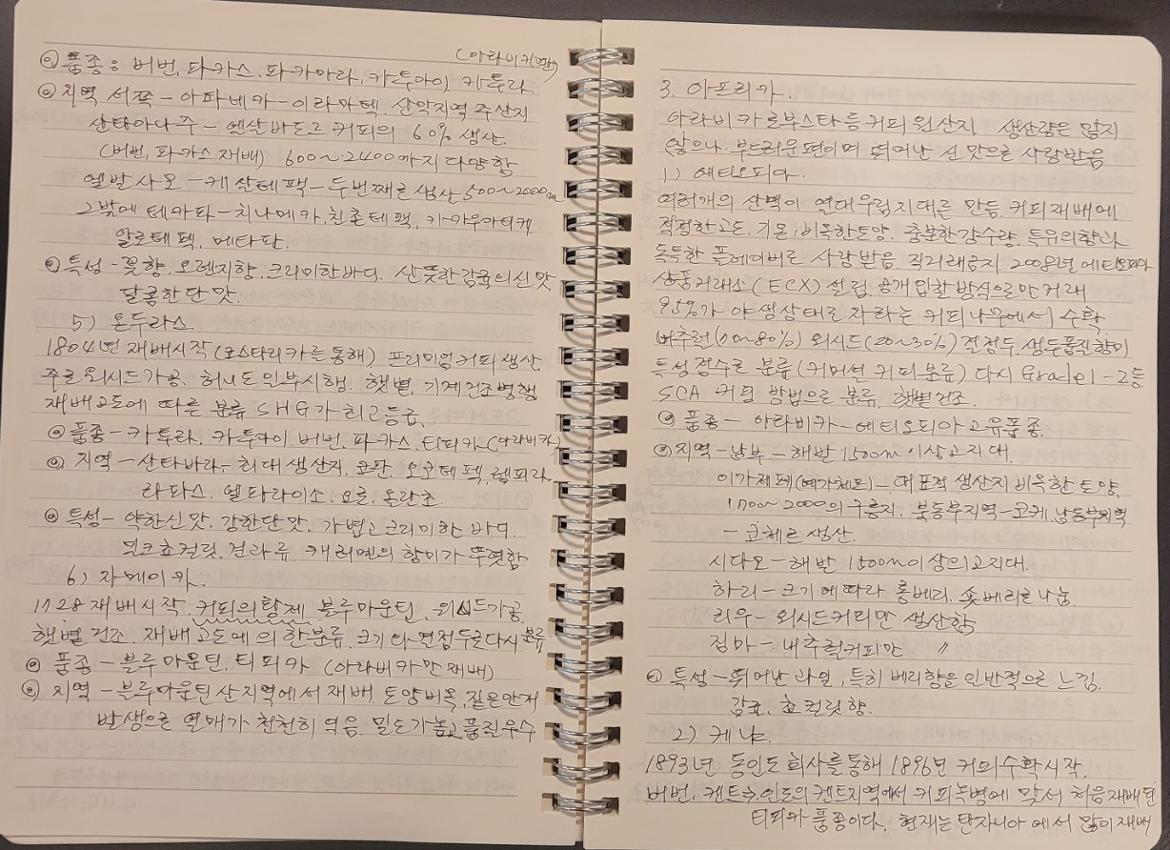 (아라비카만)
◎ 품종: 버번, 파카스, 파카마라, 카투아이, 카투라.
◎ 지역 서쪽 - 아파네카 - 이라마텍. 산악지역 주산지
산타아나 주 - 엘살바도르 커피의 60% 생산.
(버번, 파카스 재배) 600~2400까지 다양함
엘발사모 - 케살테팩 - 두번째로 생산 500~2000m
그밖에 테카파 - 치나메카, 친촌테팩, 카카우아티케
알로테펙, 메타판.
◎ 특성 - 꽃향. 오렌지향. 크리미한바디. 산뜻한 감귤의 신맛
달콤한 단맛.
5) 온두라스
1804년 재배시작 (코스타리카를 통해) 프리미엄 커피 생산
주로 워시드가공, 허니도 일부시행, 햇볕, 기계건조 병행
재배고도에 따른 분류 SHG가 최고등급
◎ 품종 - 카투라, 카투아이, 버번, 파카스, 티피카 (아라비카)
◎ 지역 - 산타바라 - 최대 생산지, 코판, 오코테펙, 렘피라,
라파스, 엘파라이소, 요로, 올란초.
◎ 특성 - 약한신맛, 강한단맛, 가볍고 크리미한 바디
밀크쵸컬릿, 견과류, 캐러멜의 향미가 뚜렷함
6) 자메이카.
1728 재배시작. 커피의 황제 블루마운틴, 워시드가공
햇볕 건조. 재배고도에 의한분류. 크기와 결점두로 다시 분류
◎ 품종 - 블루마운틴, 티피카 (아라비카만 재배)
◎ 지역 - 블루마운틴 산지역에서 재배, 토양비옥, 짙은안개
발생으로 열매가 천천히 익음. 밀도가높고 품질우수
3. 아프리카.
아라비카 로부스타등 커피 원산지. 생산량은 많지
않으나, 부드러운 편이며 뛰어난 신맛으로 사랑받음
1) 에티오피아.
여러개의 산맥이 열대우림지대를 만듬. 커피재배에
적절한고도, 기온, 비옥한토양. 충분한강수량, 특유의향과
독특한 플레이버로 사랑받음. 직거래금지 2008년 에티오피아
상품거래소 (ECX) 설립. 공개입찰 방식으로만 거래
95%가 야생상태로 자라는 커피나무에서 수확.
내추럴(70~80%) 워시드 (20~30%) 결점두, 생두품질 향미
특성 점수로 분류 (커머셜 커피분류) 다시 Grade1 - 2등
SCA 커핑 방법으로 분류, 햇볕건조.
◎ 품종 - 아라비카 - 에티오피아 고유품종.
◎ 지역 - 남부 - 해발 1500m 이상고지대.
이가체페 (예가체프) - 대표적 생산지 비옥한 토양.
1700~2000의 구릉지. 북동부지역 - 코케, 남동부지역
- 코체르 생산.
시다모 - 해발 1500m이상의고지대.
하라 - 크기에 따라 롱베리, 숏베리로나눔
리무 - 워시드커피만 생산함
짐마 - 내추럴커피만 〃
◎ 특성 - 뛰어난 과일, 특히 베리향을 일반적으로 느낌.
감귤, 쵸컬릿향.
2) 케냐.
1893년 동인도 회사를 통해 1896년 커피수확시작.
버번. 켄트는 인도의 켄트지역에서 커피녹병에 맞서 처음 재배된
티피카 품종이다. 현재는 탄자니아 에서 많이재배